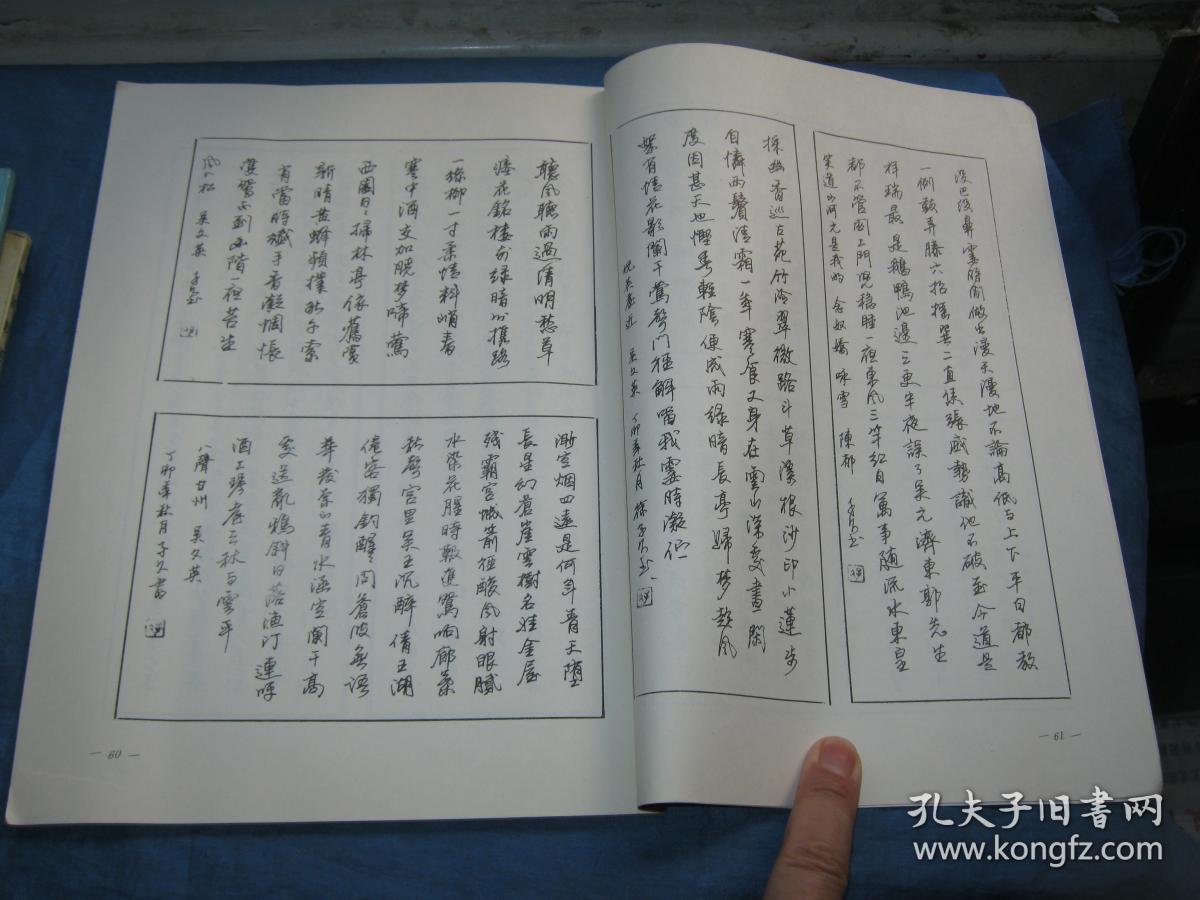 聽風聽雨過清明愁草
瘞花銘樓前綠暗分攜路
一絲柳一寸柔情料峭春
寒中酒交加曉夢啼鶯
西園日日掃林亭依舊賞
新晴黃蜂頻撲秋千索
有當時纖手香凝惆悵
雙鴛不到幽階一夜苔生
風入松 吳文英
渺空烟四遠是何年青天墜
長星幻蒼崖雲樹名娃金屋
殘霸宮城箭徑酸風射眼膩
水染花腥時靸雙鴛响廊葉
秋聲宮里吳王沉醉倩五湖
倦客獨釣醒問蒼波無語
華發奈山青水涵空闌干高
處送亂鴉斜日落漁汀連呼
酒上琴臺去秋与雲平
八聲甘州 吳文英
丁卯年秋月子久書
— 60 —
沒巴沒鼻霎時間做出漫天漫地不論高低与上下平白都教
一例鼓弄滕六招搖巽二直恁張威勢識他不破至今道是
祥瑞最是鵝鴨池邊三更半夜誤了吳元濟東郭先生
都不管關上門兒穩睡一夜東風三竿紅日萬事隨流水東皇
笑道山河元是我的 念奴嬌 咏雪 陳郁
採幽香巡古苑竹冷翠微路斗草溪根沙印小蓮步
自憐兩鬢清霜一年寒食又身在雲山深處晝閑
度因甚天也慳春輕陰便成雨綠暗長亭歸夢趁風
絮有情花影闌干鶯聲門徑解留我霎時凝佇
祝英臺近 吳文英 丁卯年秋月 徐子久書
— 61 —
孔夫子旧书网
www.kongfz.com